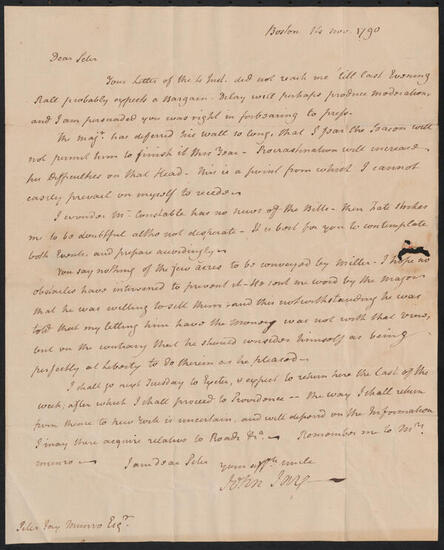 Boston 14 Nov. 1790
Dear Peter
Your Letter of the 4 Inst. did not reach me 'till last Evening
Ratt probably expects a Bargain. Delay will perhaps produce moderation,
and I am persuaded you was right in forbearing to press.
The majr. has deferred his wall so long, that I fear the Season will
not permit him to finish it this Year - Procrastination will increase
his Difficulties on that Head - This is a point from which I cannot
easily prevail on myself to recede -
I wonder Mr. Constable has no news of the Bills - their Fate strikes
me to be doubtful altho not desperate - It is best for you to contemplate
both Events and prepare accordingly -
You say nothing of the few acres to be conveyed by Miller - I hope no
obstacles have intervened to prevent it - He sent me word by the Major
that he was willing to sell them, and this notwithstanding he was
told that my letting him have the Money was not with that View,
but on the contrary that he should consider himself as being
perfectly at Liberty to do therein as he pleased -
I shall go next Tuesday to Exeter, & expect to return here the last of the
week; after which I shall proceed to Providence - the way I shall return
from thence to new York is uncertain, and will depend on the Information
I may there acquire relative to Roads &c. - Remember me to Mrs.
munro -
I am dear Peter
your affte. uncle
John Jay -
Peter Jay Munro Esqr.